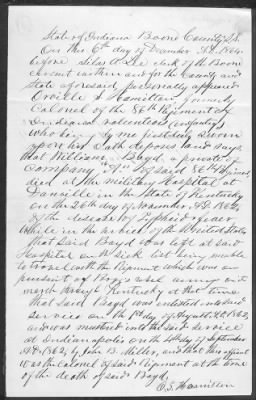 State of Indiana Boone County, Ss.
On this 6th day of December A.D. 1864
before Silas A. Lee clerk of the Boone
Circuit court in and for the County and
State aforesaid personally appeared
Orville S. Hamilton formerly
Colonel of the 86th Regiment of
Indiana volunteers (infantry)
who being by me first duly Sworn
upon his oath deposes and says
that William Boyd, a private of
Company of said 86th Regiment,
died at the military Hospital at
Danville in the State of Kentucky
on the 26th day of November A.D. 1862,
of the disease of Typhoid fever
while in the service of the United States
that Said Boyd was left at said
Hospital on the Sick list being unable
to travel with the Regiment which was in
pursuit of Bragg's army on its
march through Kentucky at that time.
that said Boyd was enlisted into said
service on the day of August AD 1862,
and was mustered into the said service
at Indianapolis on the 4th day of September
A.D. 1862, by John B. Miller, and that this affiant
was the Colonel of said Regiment at the time
of the death of said Boyd.
O. S. Hamilton